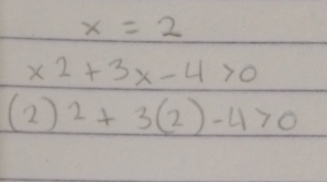 x = 2
x2 + 3x - 4 > 0
(2)2 + 3(2) - 4 > 0